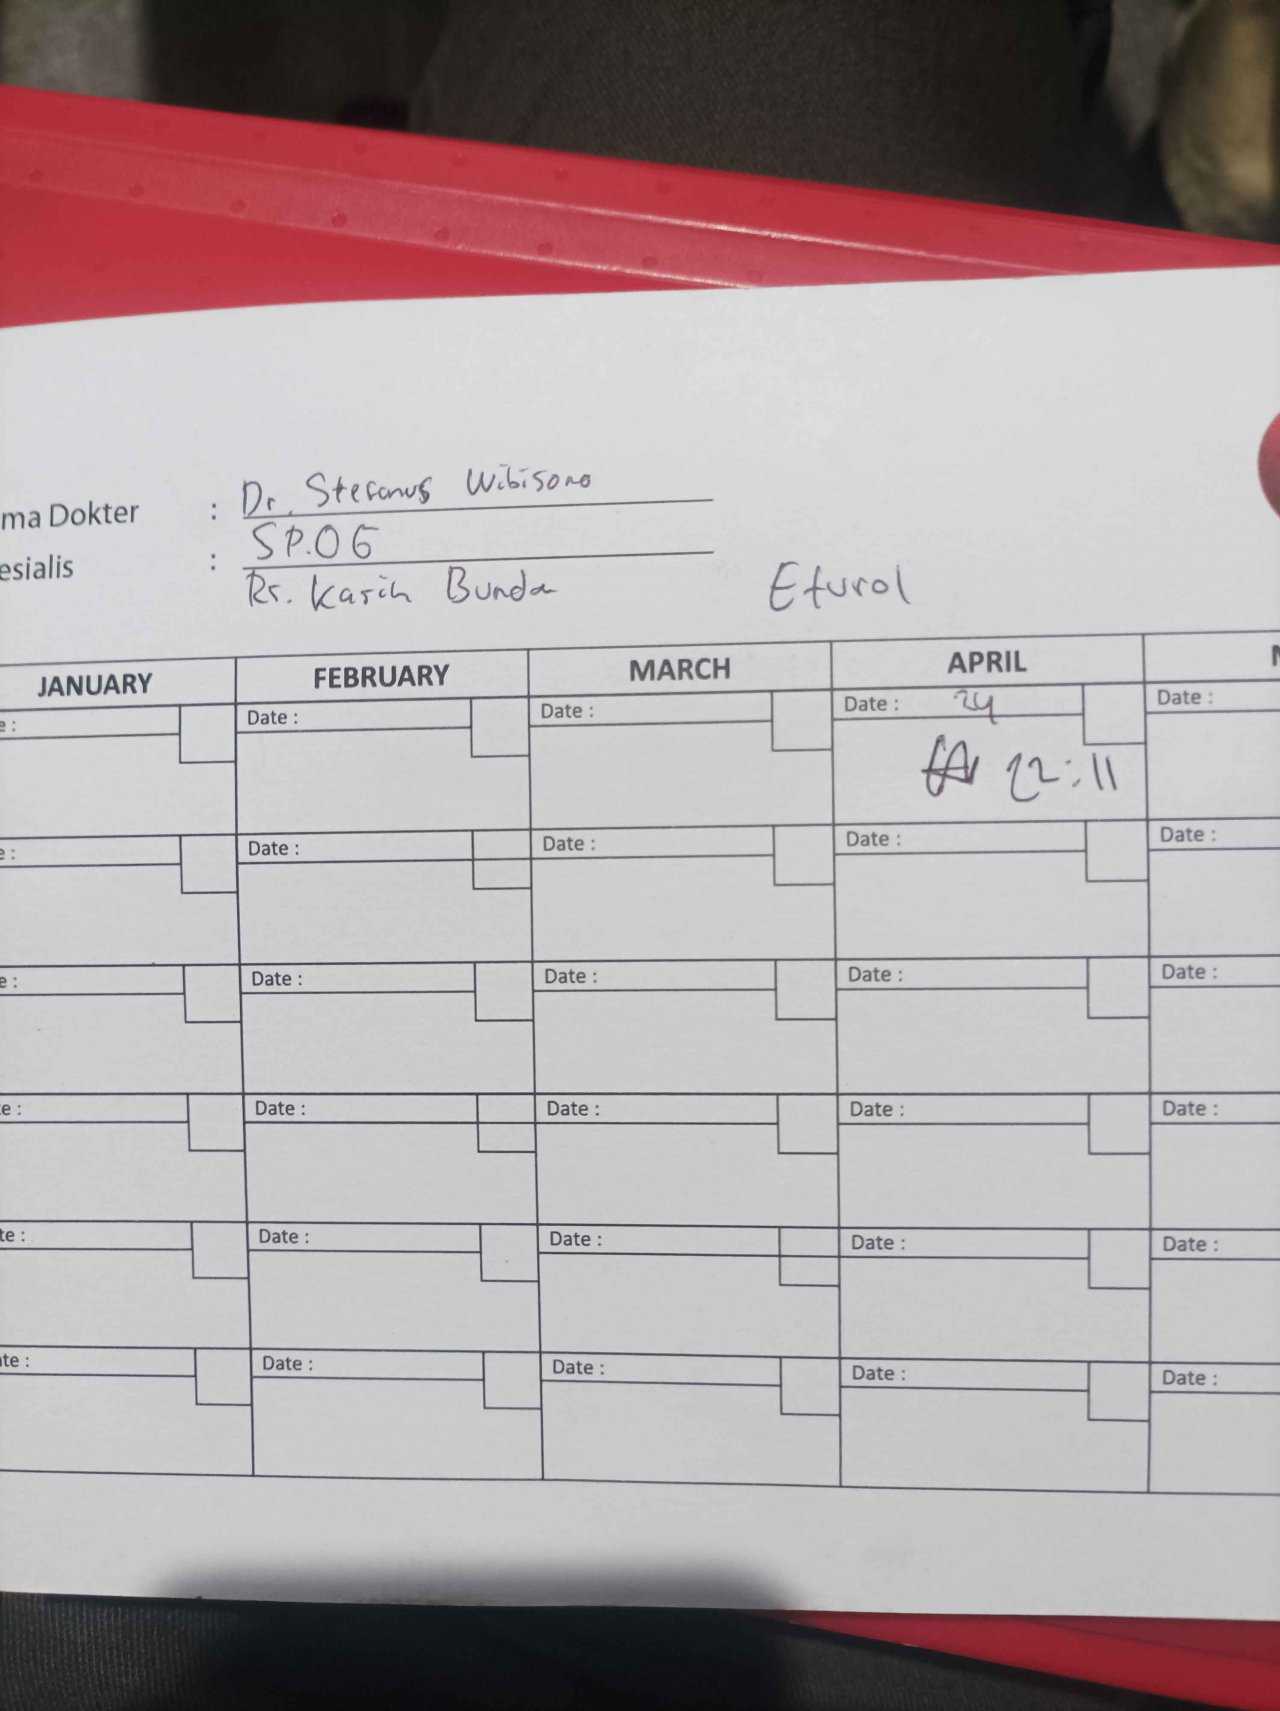 ma Dokter : Dr. Stefanus Wibisono
esialis : SP.OG
Rs. Kasih Bunda Eturol
JANUARY FEBRUARY MARCH APRIL
e : Date : Date : Date : 24 Date :
22:11
e : Date : Date : Date : Date :
e : Date : Date : Date : Date :
te : Date : Date : Date : Date :
te : Date : Date : Date : Date :
ate : Date : Date : Date : Date :